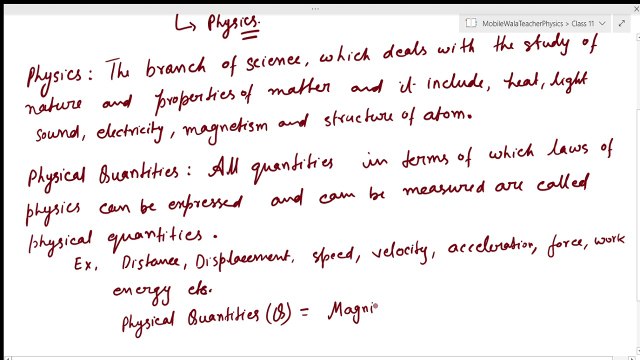 MobileWalaTeacherPhysics > Class 11
↳ Physics.
Physics : The branch of science, which deals with the study of
nature and properties of matter and it include, heat, light
sound, electricity, magnetism and structure of atom.
Physical Quantities : All quantities in terms of which laws of
physics can be expressed and can be measured are called
physical quantities.
Ex. Distance, Displacement, speed, velocity, acceleration, force, work
energy etc.
Physical Quantities (Q) = Magni